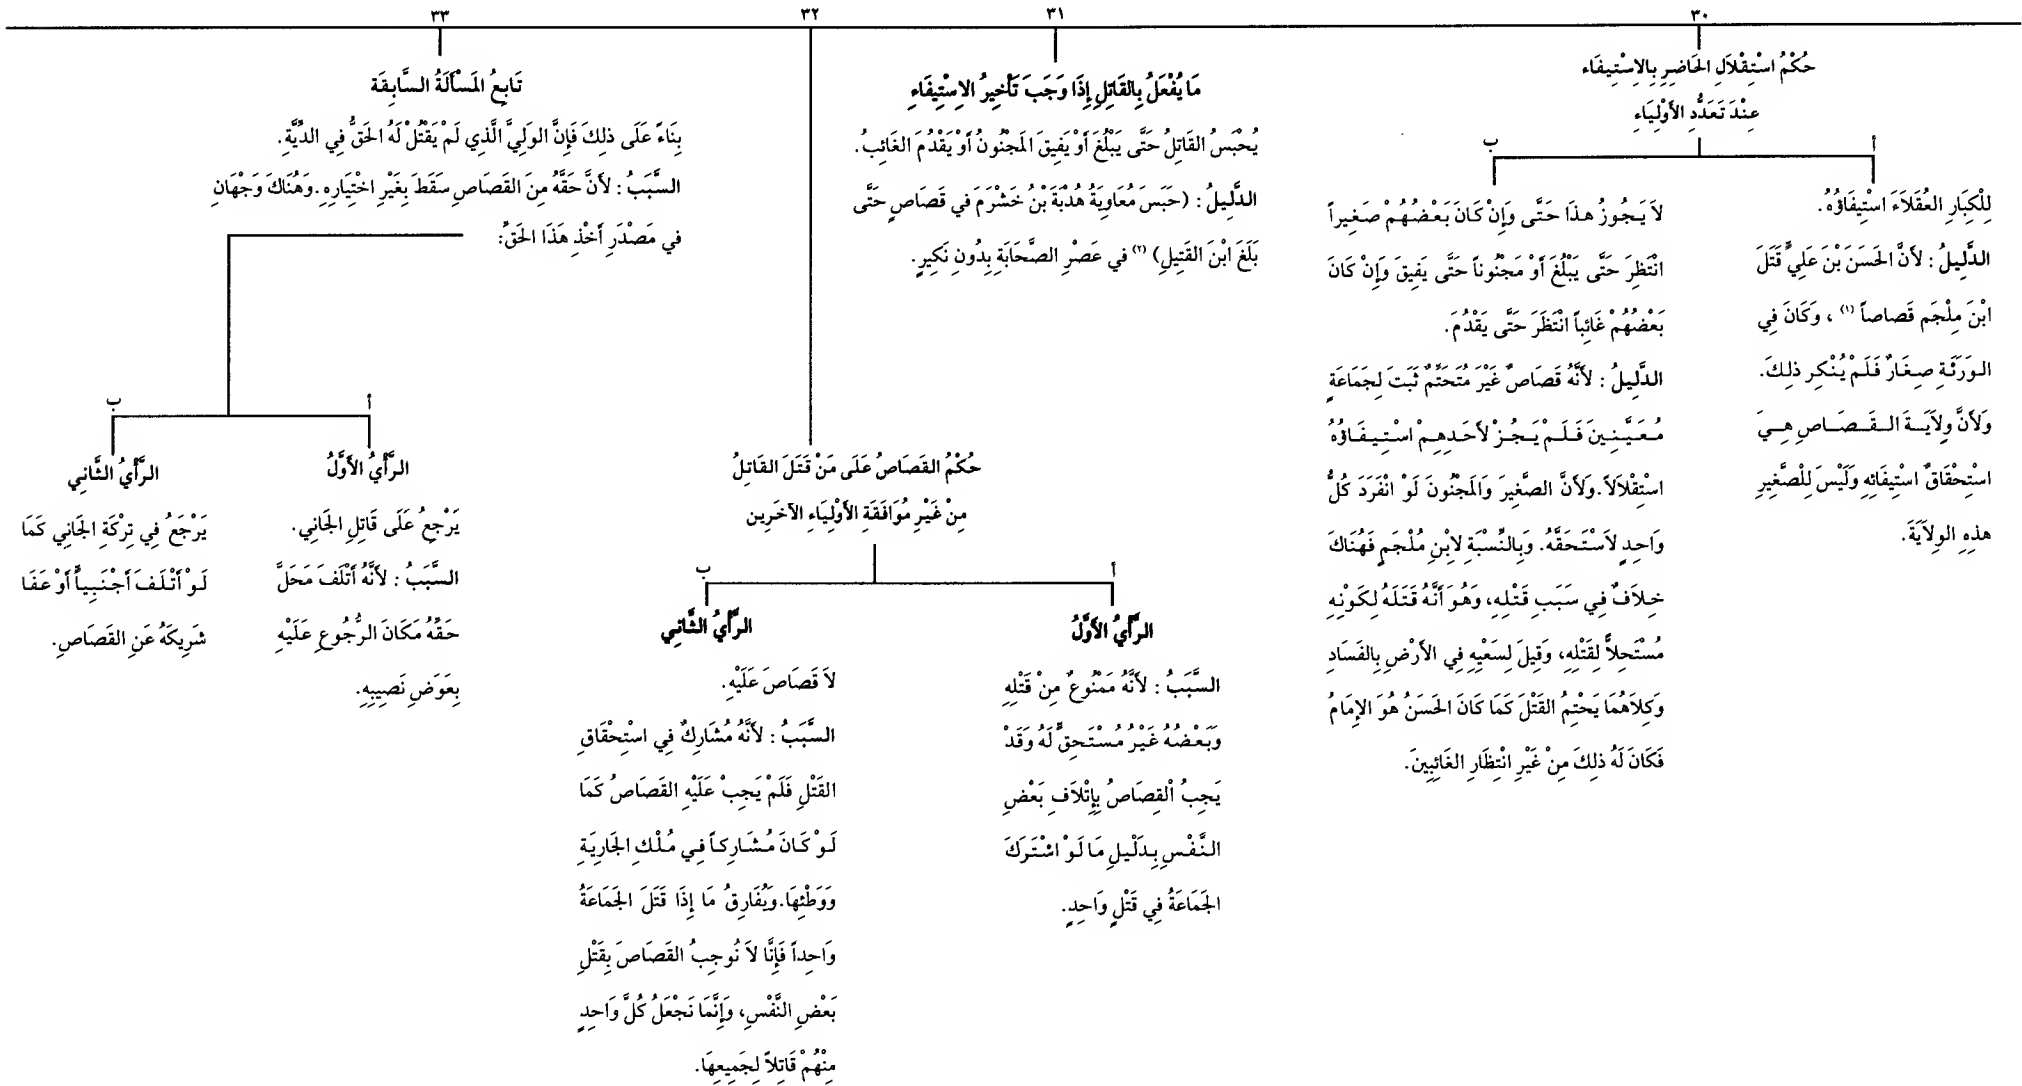 ٣٠
حُكْمُ اسْتِقْلاَلِ الحَاضِرِ بِالاِسْتِيفَاء
عِنْدَ تَعَدُّدِ الأَوْلِيَاءِ
أ
لِلْكِبَارِ العُقَلاَءَ اسْتِيفَاؤُهُ.
الدَّلِيلُ : لأَنَّ الحَسَنَ بْنَ عَلِيٍّ قَتَلَ
ابْنَ مِلْجَم قَصاصاً (١) ، وَكَانَ فِي
الوَرَثَةِ صِغَارٌ فَلَمْ يُنْكِر ذلِكَ.
وَلأَنَّ وِلاَيَةَ القَصَاصِ هِيَ
اسْتِحْقَاقٌ اسْتِيفَائِهِ وَلَيْسَ لِلْصَّغِيرِ
هذِهِ الوِلاَيَةَ.
ب
لاَ يَجُوزُ هذَا حَتَّى وَإِنْ كَانَ بَعْضُهُمْ صَغِيراً
انْتَظِرَ حَتَّى يَبْلُغَ أَوْ مَجْنُوناً حَتَّى يَفِيقَ وَإِنْ كَانَ
بَعْضُهُمْ غَائِباً انْتَظَرَ حَتَّى يَقْدُمَ.
الدَّلِيلُ : لأَنَّهُ قَصَاصٌ غَيْرَ مُتَحَتِّمٌ ثَبَتَ لِجَمَاعَةٍ
مُعَيَّنِينَ فَلَمْ يَجُزْ لأَحَدِهِمْ اسْتِيفَاؤُهُ
اسْتِقْلاَلاً. وَلأَنَّ الصَّغِيرَ وَالمَجْنُونَ لَوْ انْفَرَدَ كُلُّ
وَاحِدٍ لاَسْتَحَقَّهُ. وَبِالنِّسْبَةِ لاِبْنِ مُلْجَمٍ فَهُنَاكَ
خِلاَفٌ فِي سَبَبِ قَتْلِهِ، وَهُوَ أَنَّهُ قَتَلَهُ لِكَوْنِهِ
مُسْتَحِلاً لِقَتْلِهِ، وَقِيلَ لِسَعْيِهِ فِي الأَرْضِ بِالفَسَادِ
وَكِلاَهُمَا يَحْتِمُ القَتْلَ كَمَا كَانَ الحَسَنُ هُوَ الإِمَامُ
فَكَانَ لَهُ ذلِكَ مِنْ غَيْرِ انْتِظَارِ الغَائِبِينَ.
٣١
مَا يُفْعَلُ بِالقَاتِلِ إِذَا وَجَبَ تَأْخِيرُ الاِسْتِيفَاءِ
يُحْبَسُ القَاتِلُ حَتَّى يَبْلُغَ أَوْ يَفِيقَ المَجْنُونُ أَوْ يَقْدُمَ الغَائِبُ.
الدَّلِيلُ : (حَبَسَ مُعَاوِيَةُ هُدْبَةَ بْنُ خَشْرَمَ فِي قَصَاصٍ حَتَّى
بَلَغَ ابْنَ القَتِيلِ) (٢) في عَصْرِ الصَّحَابَةِ بِدُونِ نَكِيرٍ.
٣٢
حُكْمُ القَصَاصُ عَلَى مَنْ قَتَلَ القَاتِلُ
مِنْ غَيْرِ مُوَافَقَةِ الأَوْلِيَاءِ الآخَرِين
أ
الرَّأْيُ الأَوَّلُ
السَّبَبُ : لأَنَّهُ مَمْنُوعٌ مِنْ قَتْلِهِ
وَبَعْضُهُ غَيْرُ مُسْتَحِقٍّ لَهُ وَقَدْ
يَجِبُ القِصَاصُ بِإِتْلاَفِ بَعْضِ
النَّفْسِ بِدَلْيلِ مَا لَوْ اشْتَرَكَ
الجَمَاعَةُ فِي قَتْلٍ وَاحِدٍ.
ب
الرَّأْيُ الثَّانِي
لاَ قَصَاصَ عَلَيْهِ.
السَّبَبُ : لأَنَّهُ مُشَارِكٌ فِي اسْتِحْقَاقِ
القَتْلِ فَلَمْ يَجِبْ عَلَيْهِ القَصَاصُ كَمَا
لَوْ كَانَ مُشَارِكاً فِي مُلْكِ الجَارِيَةِ
وَوَطْئِهَا. وَيُفَارِقُ مَا إِذَا قَتَلَ الجَمَاعَةُ
وَاحِداً فَإِنَّا لاَ نُوجِبُ القَصَاصَ بِقَتْلِ
بَعْضِ النَّفْسِ، وَإِنَّمَا نَجْعَلُ كُلَّ وَاحِدٍ
مِنْهُمْ قَاتِلاً لِجَمِيعِهَا.
٣٣
تَابِعُ المَسْأَلَةُ السَّابِقَة
بِنَاءً عَلَى ذلِكَ فَإِنَّ الوَلِيَّ الَّذِي لَمْ يَقْتُلْ لَهُ الحَقُّ فِي الدِّيَّةِ.
السَّبَبُ : لأَنَّ حَقَّهُ مِنَ القَصَاصِ سَقَطَ بِغَيْرِ اخْتِيَارِهِ. وَهُنَاكَ وَجْهَانِ
في مَصْدَرِ أَخْذِ هَذَا الحَقِّ:
أ
الرَّأْيُ الأَوَّلُ
يَرْجِعُ عَلَى قَاتِلِ الجَانِي.
السَّبَبُ : لأَنَّهُ أَتْلَفَ مَحَلَّ
حَقِّهُ مَكَانَ الرُّجُوعِ عَلَيْهِ
بِعَوَضِ نَصِيبِهِ.
ب
الرَّأْيُ الثَّانِي
يَرْجَعُ فِي تِرْكَةِ الجَانِي كَمَا
لَوْ أَتْلَفَ أَجْنَبِياً أَوْ عَفَا
شَرِيكَهُ عَنِ القَصَاصِ.